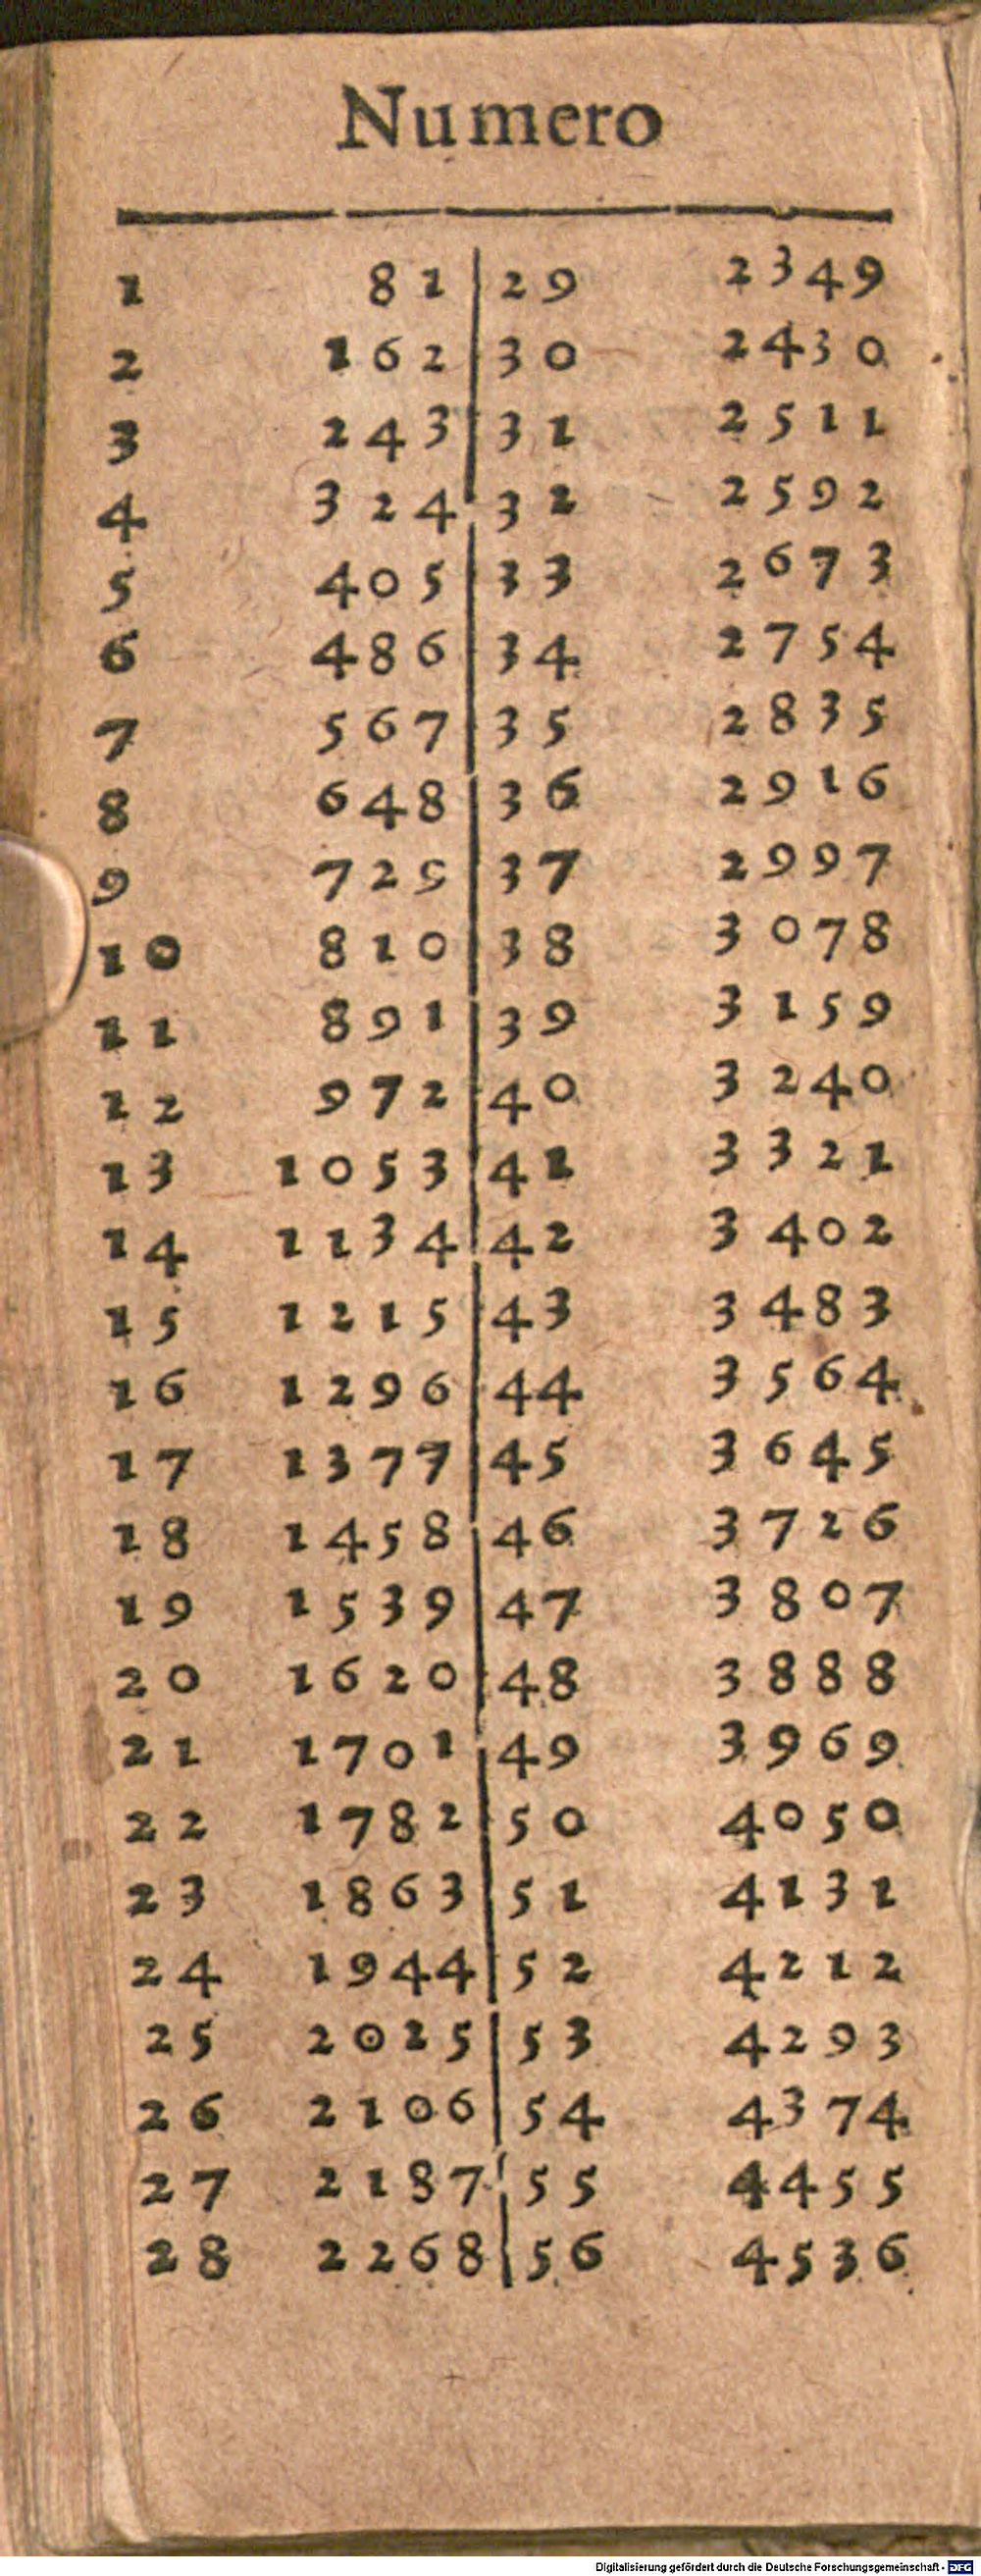 Numero
1 81 29 2349
2 162 30 2430
3 243 31 2511
4 324 32 2592
5 405 33 2673
6 486 34 2754
7 567 35 2835
8 648 36 2916
9 729 37 2997
10 810 38 3078
11 891 39 3159
12 972 40 3240
13 1053 41 3321
14 1134 42 3402
15 1215 43 3483
16 1296 44 3564
17 1377 45 3645
18 1458 46 3726
19 1539 47 3807
20 1620 48 3888
21 1701 49 3969
22 1782 50 4050
23 1863 51 4131
24 1944 52 4212
25 2025 53 4293
26 2106 54 4374
27 2187 55 4455
28 2268 56 4536
Digitalisierung gefördert durch die Deutsche Forschungsgemeinschaft - DFG